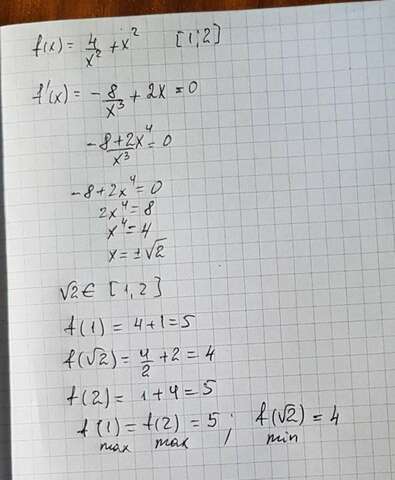 f(x) = 4/x² + x² [1; 2]
f'(x) = -8/x³ + 2x = 0
(-8+2x⁴)/x³ = 0
-8+2x⁴ = 0
2x⁴ = 8
x⁴ = 4
x = ±√2
√2 ∈ [1, 2]
f(1) = 4+1 = 5
f(√2) = 4/2 + 2 = 4
f(2) = 1+4 = 5
f(1) = f(2) = 5 ; f(√2) = 4
max max min